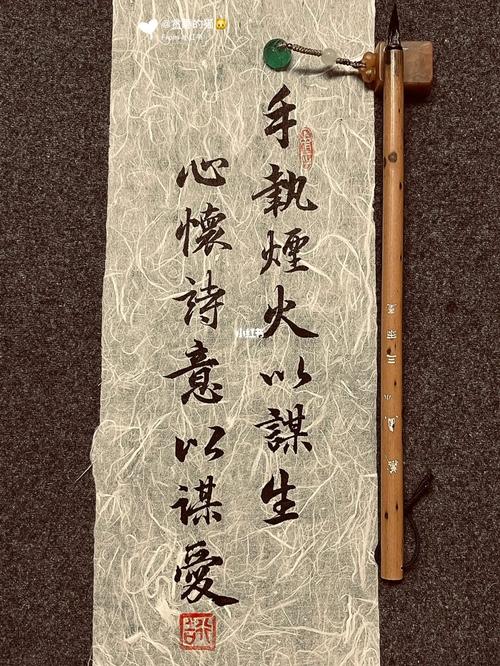 手執煙火以謀生
心懷詩意以謀愛
小红书